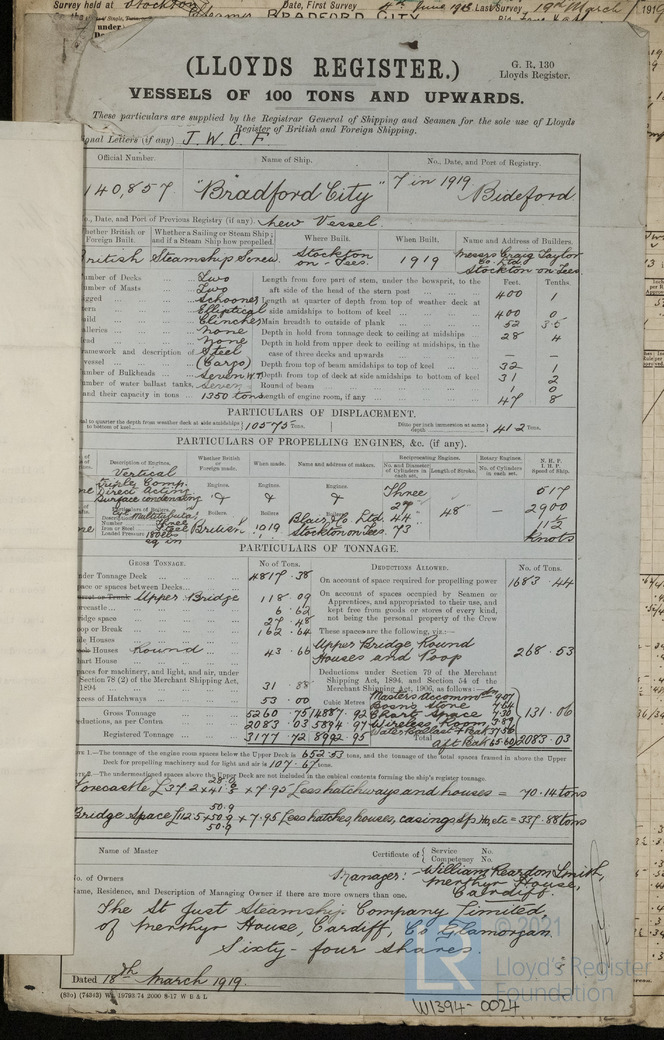 Survey held at Stockton Date, First Survey 4th June 1918 Last Survey 19th March 1919
BRADFORD CITY
(LLOYDS REGISTER.)
G. R. 130
Lloyds Register.
VESSELS OF 100 TONS AND UPWARDS.
These particulars are supplied by the Registrar General of Shipping and Seamen for the sole use of Lloyds
Register of British and Foreign Shipping.
nal Letters (if any) J. W. C. F.
Official Number. Name of Ship. No., Date, and Port of Registry.
140,857 "Bradford City" 7 in 1919 Bideford
o., Date, and Port of Previous Registry (if any). New Vessel.
hether British or Foreign Built. Whether a Sailing or Steam Ship; and if a Steam Ship how propelled. Where Built. When Built. Name and Address of Builders.
British Steamship Screw Stockton on-Tees. 1919 Messrs Craig Taylor Co. Ltd Stockton on Tees
Feet. Tenths.
umber of Decks Two Length from fore part of stem, under the bowsprit, to the
umber of Masts Two aft side of the head of the stern post 400 1
igged Schooner Length at quarter of depth from top of weather deck at
ern Elliptical side amidships to bottom of keel 400 0
uild Clincher Main breadth to outside of plank 52 35
alleries None Depth in hold from tonnage deck to ceiling at midships 28 4
ead None Depth in hold from upper deck to ceiling at midships, in the
ramework and description of Steel case of three decks and upwards — —
vessel (Cargo) Depth from top of beam amidships to top of keel 32 1
umber of Bulkheads Seven W.T. Depth from top of deck at side amidships to bottom of keel 31 2
umber of water ballast tanks, Seven Round of beam 1 0
and their capacity in tons 1350 tons Length of engine room, if any 47 8
PARTICULARS OF DISPLACEMENT.
al to quarter the depth from weather deck at side amidships to bottom of keel 10575 Tons. Ditto per inch immersion at same depth 41 2 Tons.
PARTICULARS OF PROPELLING ENGINES, &c. (if any).
Description of Engines. Whether British or Foreign made. When made. Name and address of makers. Reciprocating Engines. Rotary Engines. N. H. P.
No. and Diameter of Cylinders in each set. Length of Stroke. No. of Cylinders in each set. I. H. P. Speed of Ship.
Vertical
Triple Comp. Engines. Engines. Engines. Three 517
Direct Acting & & & 27
Surface condensing 48 — 2900
Particulars of Boilers. Boilers. Boilers Boilers Blair & Co. Ltd. 44 11½
Description Multitubular
Number Three
Iron or Steel Steel British 1919 Stockton on Tees. 73 Knots
Loaded Pressure 180 lbs
sq in
PARTICULARS OF TONNAGE.
GROSS TONNAGE. No. of Tons. DEDUCTIONS ALLOWED. No. of Tons.
nder Tonnage Deck 4817 . 38 On account of space required for propelling power 1683 . 44
pace or spaces between Decks
Upper Bridge 118 . 09 On account of spaces occupied by Seamen or
orecastle 6 . 62 Apprentices, and appropriated to their use, and
ridge space 27 . 48 kept free from goods or stores of every kind,
oop or Break 162 . 64 not being the personal property of the Crew
ide Houses These spaces are the following, viz.:—
Houses Round 43 . 66 Upper Bridge Round Houses and Poop 268 . 53
hart House
paces for machinery, and light, and air, under Deductions under Section 79 of the Merchant
Section 78 (2) of the Merchant Shipping Act, Shipping Act, 1894, and Section 54 of the
1894 31 . 88 Merchant Shipping Act, 1906, as follows:—
xcess of Hatchways 53 . 00 Cubic Metres Masters Accommdtn 9.07
Boosns Store 4.64
Gross Tonnage 5260 . 75 14887 . 92 Chart Space 7.30 131 . 06
eductions, as per Contra 2083 . 03 5894 . 97 Wireless Room 3.89
Registered Tonnage 3177 . 72 8992 . 95 Water ballast F Peak
Aft Peak Total 2083 . 03
1.—The tonnage of the engine room spaces below the Upper Deck is 652.53 tons, and the tonnage of the total spaces framed in above the Upper
Deck for propelling machinery and for light and air is 107.67 tons.
2.—The undermentioned spaces above the Upper Deck are not included in the cubical contents forming the ship's register tonnage.
Forecastle L37.2 x 41.5 x 7.95 Less hatchways and houses = 70.14 tons
50.9
Bridge Space L112.5 x 50.9 x 7.95 Less hatches, houses, casings etc = 337.88 tons
50.9
Name of Master Certificate of Service No. Competency No.
o. of Owners Manager:- William Reardon Smith,
Merthyr House,
Cardiff.
ame, Residence, and Description of Managing Owner if there are more owners than one.
The St Just Steamship Company Limited,
of Merthyr House, Cardiff, Co Glamorgan.
Sixty-four shares.
Dated 18th March 1919.
(85o) (74343) Wt. 19793/74 2000 8-17 W B & L
2021
LR
Lloyd's Register
Foundation
W1394-0024